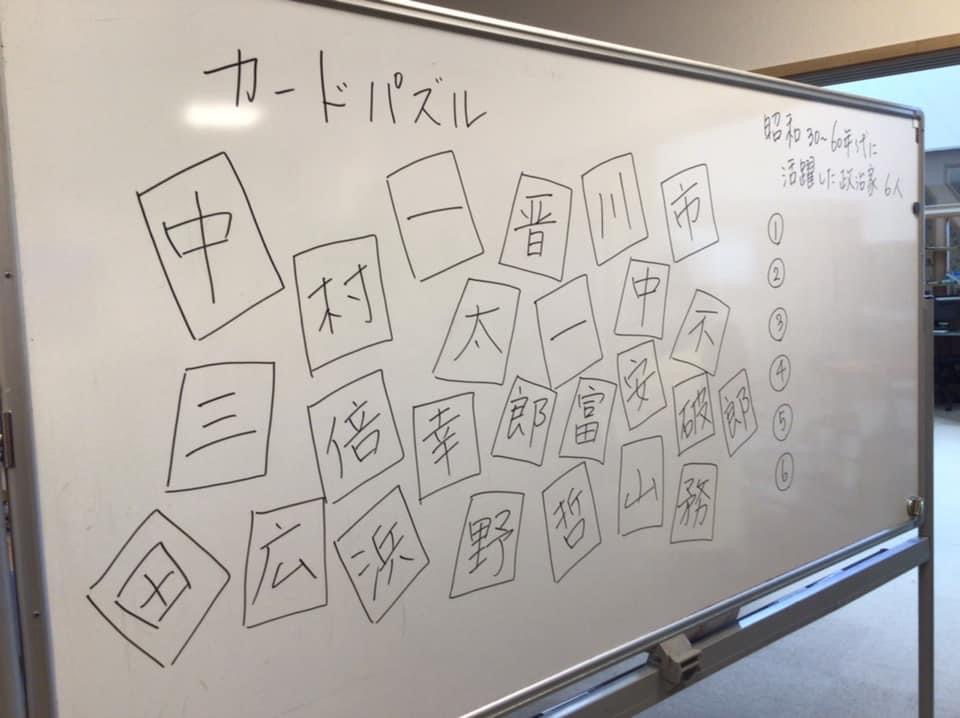 カードパズル
昭和30~60年代に
活躍した政治家 6人
中 一 晋 川 市
村 太 一 中 不
三 倍 幸 郎 富 安 破 郎
田 広 浜 野 哲 山 務
①
②
③
④
⑤
⑥